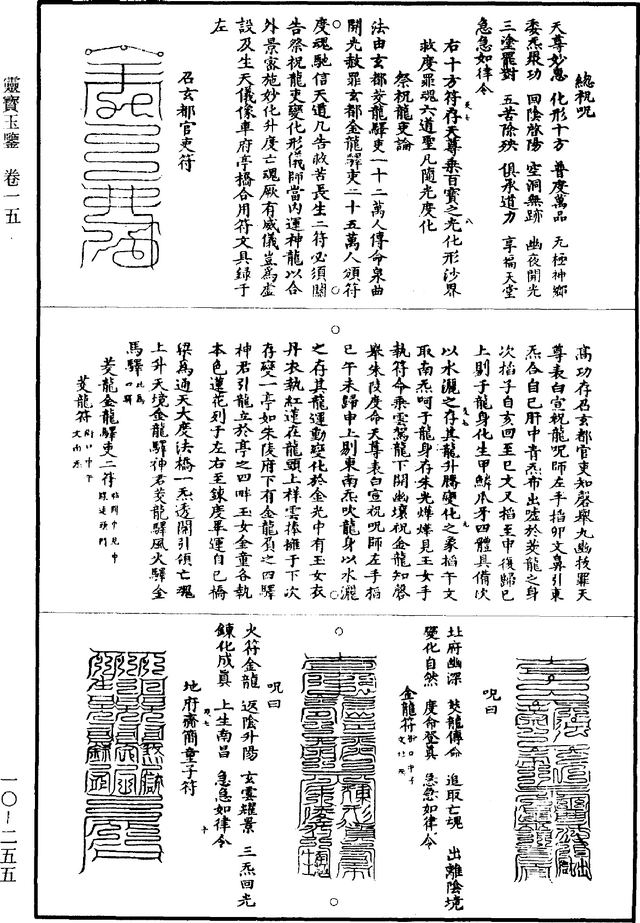 總祝呪
天尊妙恩 化形十方 普度萬品 无極神鄉
委炁聚功 回陰啓陽 空洞無跡 幽夜開光
三塗罷對 五苦除殃 俱承道力 享福天堂
急急如律令
右十方符存天尊乘百寶之光化形沙界
救度罪魂六道聖凡隨光度化
祭祝龍吏論
法由玄都茭龍驛吏一十二萬人傳命泉曲
開光赦罪玄都金龍驛吏二十五萬人頒符
度魂馳信天道凡告救苦長生二符必須關
告祭祝龍吏變化形儀師當內運神龍以合
外景家施妙化升度亡魂厥有威儀豈為虛
設及生天儀像車府亭橋合用符文具録于
左
召玄都官吏符
高功存召玄都官吏知磬舉九幽拔罪天
尊表白宣祝龍呪師左手掐卯文鼻引東
炁合自己肝中青炁布出噓於茭龍之身
次掐子自亥回至巳文又掐至申復歸巳
上剔于龍身化生甲鱗爪牙四體具備次
以水灑之存其龍升騰變化之象掐午文
取南炁呵于龍身存朱光燁燁見玉女手
執符命乘雲駕龍下開幽壤祝金龍知磬
舉朱陵度命天尊表白宣祝呪師左手掐
巳午未歸申上剔東南炁吹龍身以水灑
之存其龍運動變化於金光中有玉女衣
丹衣執紅蓮在龍頭上祥雲捧擁于下次
存變一亭如朱陵府下有金龍負之四驛
神君引龍立於亭之四畔玉女金童各執
本色蓮花列于左右至鍊度畢運自己橋
梁為通天大度法橋一炁透開引領亡魂
上升天境金龍驛神君茭龍驛風火驛金
馬驛
茭龍金龍驛吏二符
茭龍符
呪曰
北府幽深 茭龍傳命 追取亡魂 出離陰境
變化自然 度命登真 急急如律令
金龍符
呪曰
火符金龍 返陰升陽 玄雲耀景 三炁回光
鍊化成真 上生南昌 急急如律令
地府齋簡童子符
靈寶玉鑒 卷一五
一〇-二五五